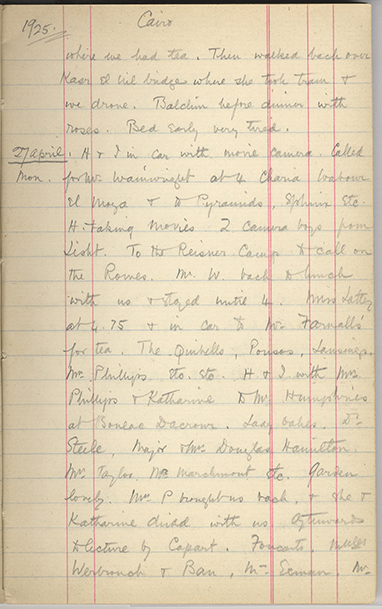 1925. Cairo
where we had tea. Then walked back over
Kasr el Nil bridge where she took tram &
we drove. Balchin before dinner with
roses. Bed Early very tired.
27 April. H & I in car with movie camera. Called
Mon. for Mr. Wainwright at 4 Sharia
El & to Pyramids, Sphinx etc.
H. taking Movies 2 camera boys from
Lisht. To the Reisner Camp to call on
the Rowes. Mr. W. back to lunch
with us & stayed until 4. Miss
at 4.45 & in car to Mr. Farnall's
for tea. The Quibells, Lansings,
Mrs Phillips Etc. Etc. H & I with Mrs
Phillips & Katharine to Mr. Humphries
at Dacrour. Lady Oakes, Dr
Steele, Major & Mrs Douglas Hamilton.
Mr. Taylor, Marchmont Etc. Garden
lovely. Mrs P brought us back, & she &
Katharine dined with us. Afterwards
to lecture by Capart. Foucarts,
Werbrouck & , Mr.